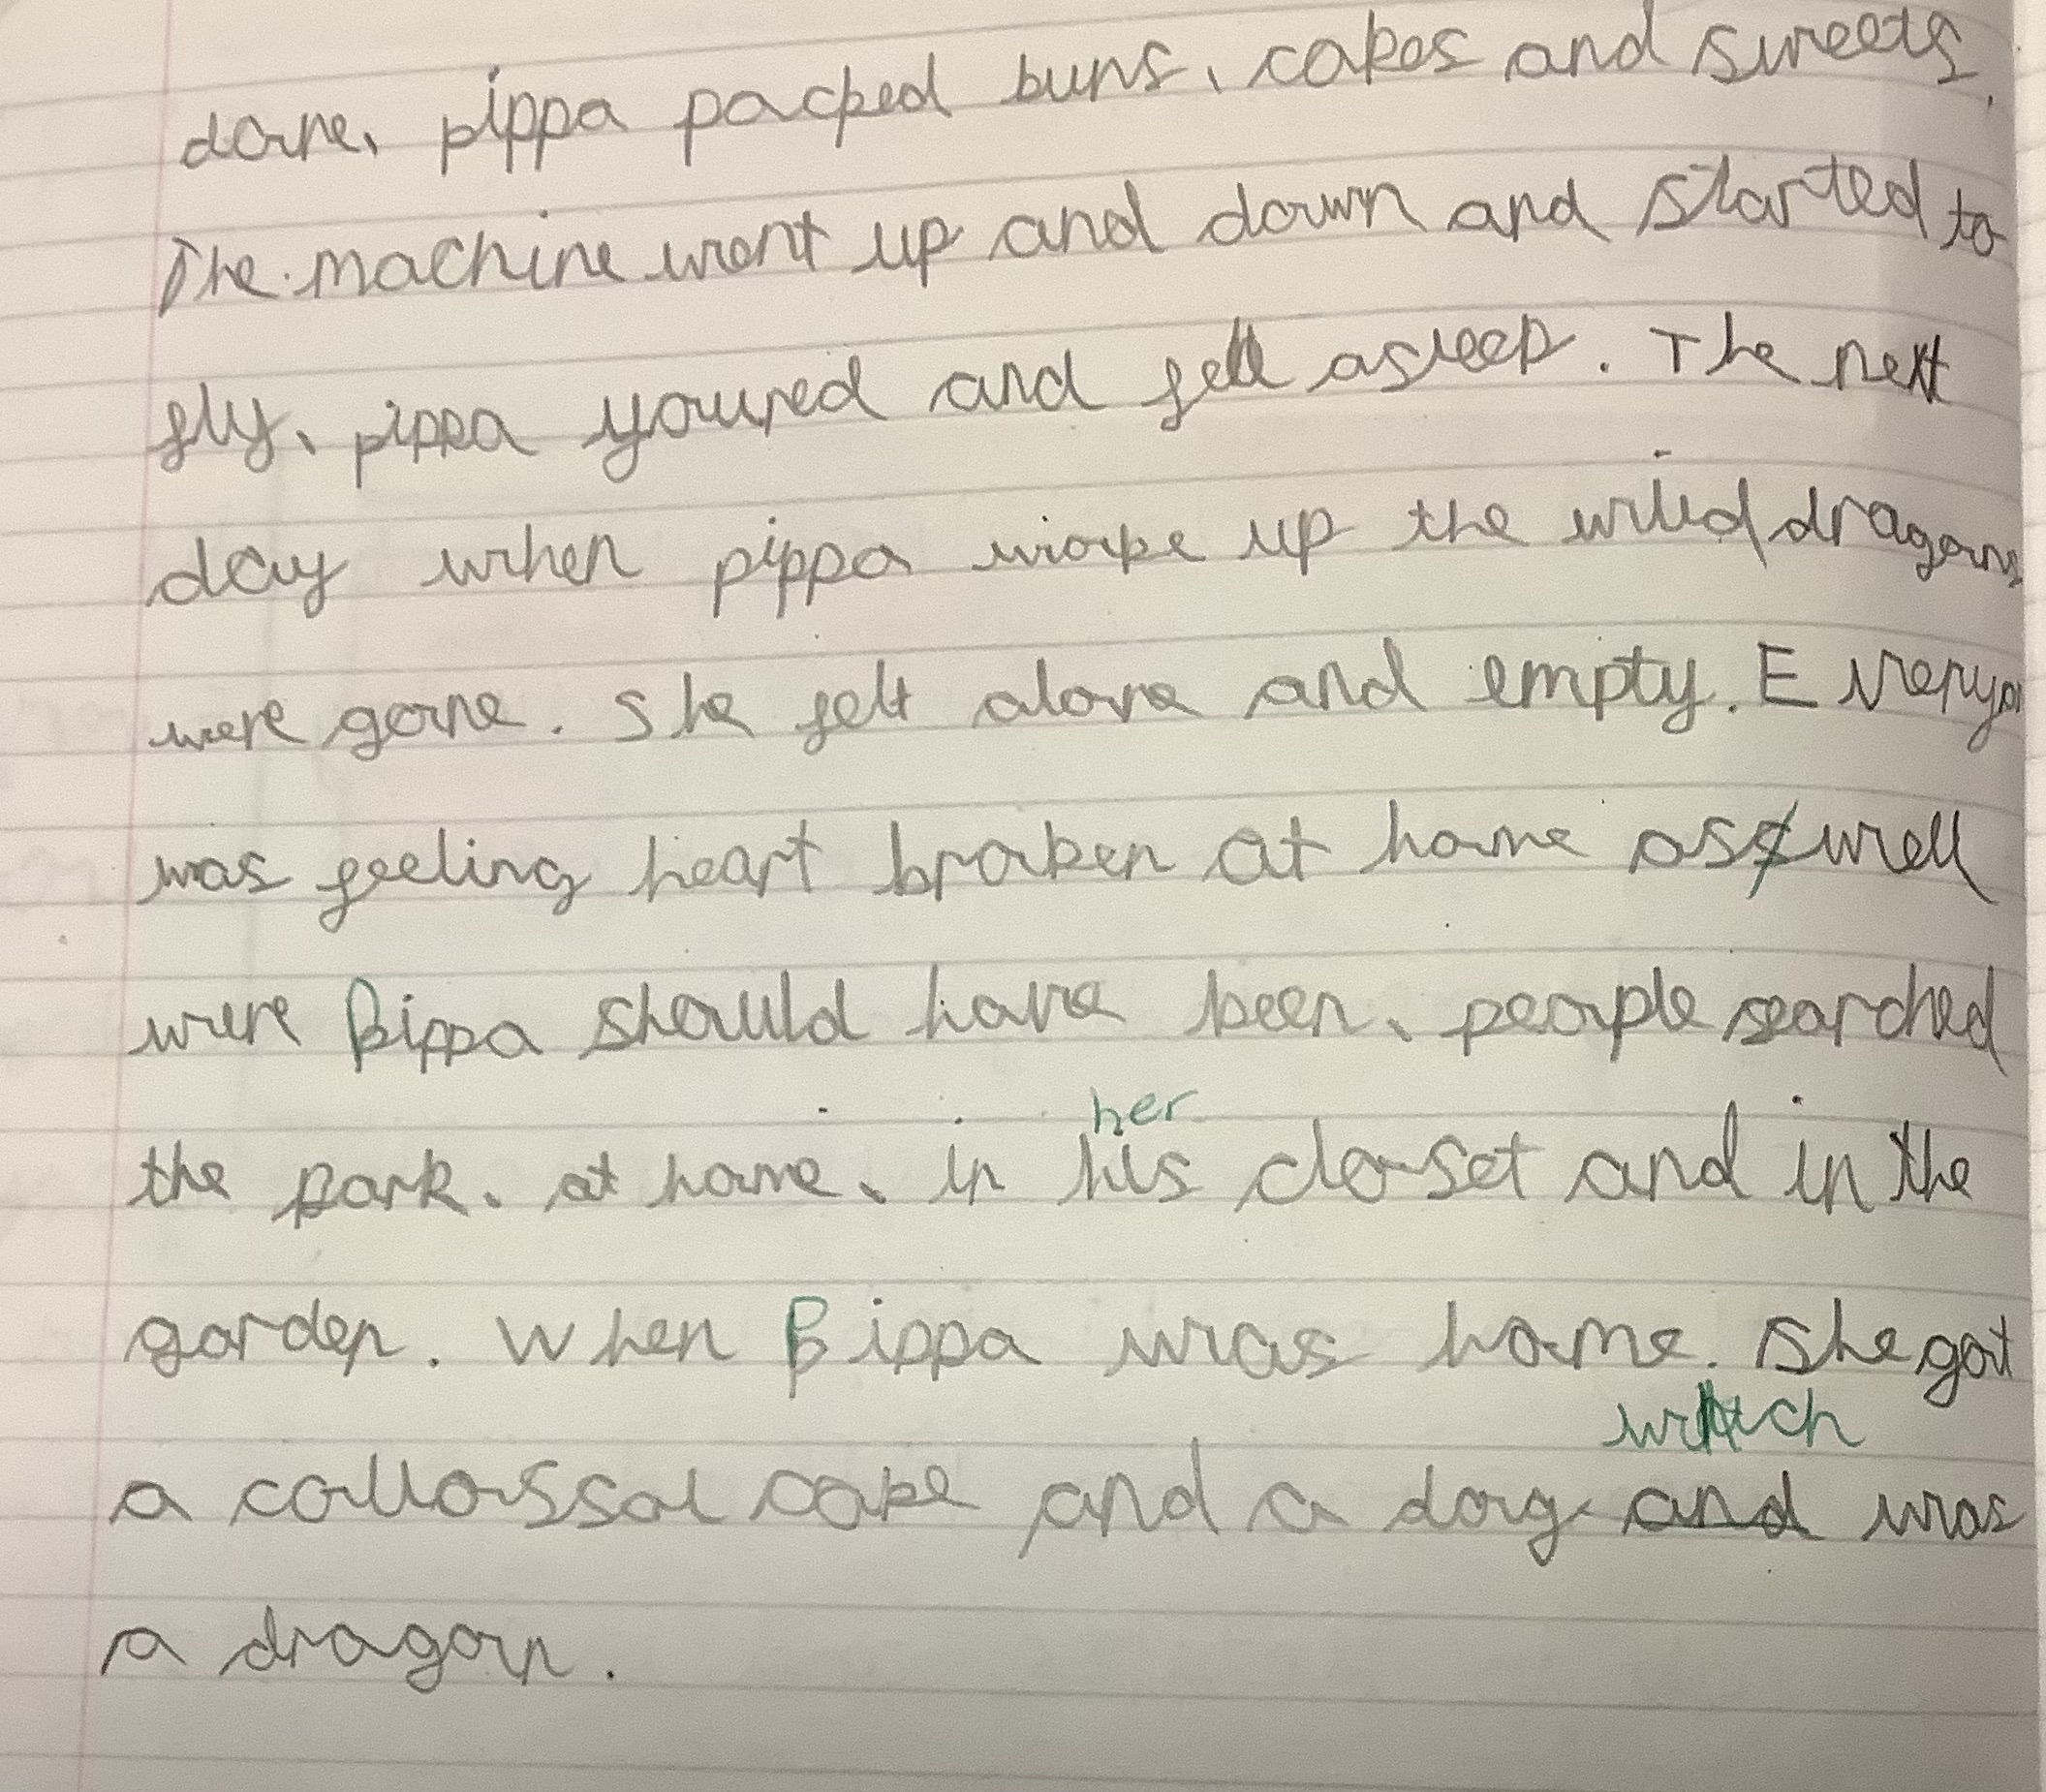 done, pippa packed buns, cakes and sweets,
The machine went up and down and started to
fly, pippa youned and fell asleep. The next
day when pippa woke up the wiled dragons
were gone. She felt alone and empty. Everyon
was feeling heart broken at home as well
were Pippa should have been, people searched
the park, at home, in his her closet and in the
garden. When Pippa was home. She got
a collossal cake and a dog and which was
a dragon.